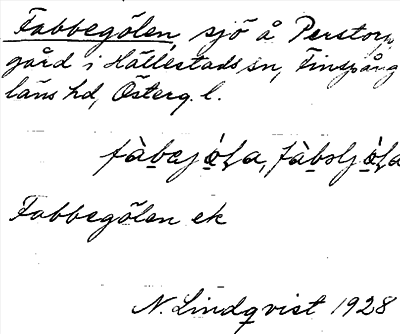 Fabbegölen, sjö å Perstorp
gård i Hällestads sn, Finspång
läns hd, Österg. l.
Fabbegölen ek
N. Lindqvist 1928